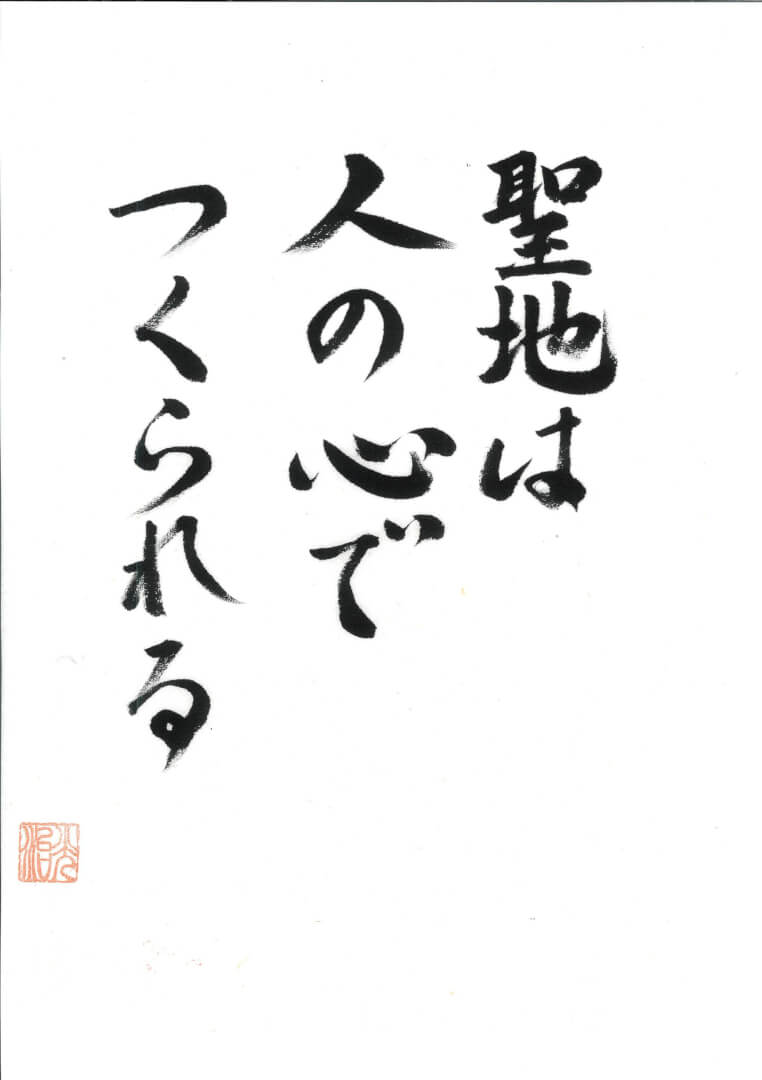 聖地は
人の心で
つくられる